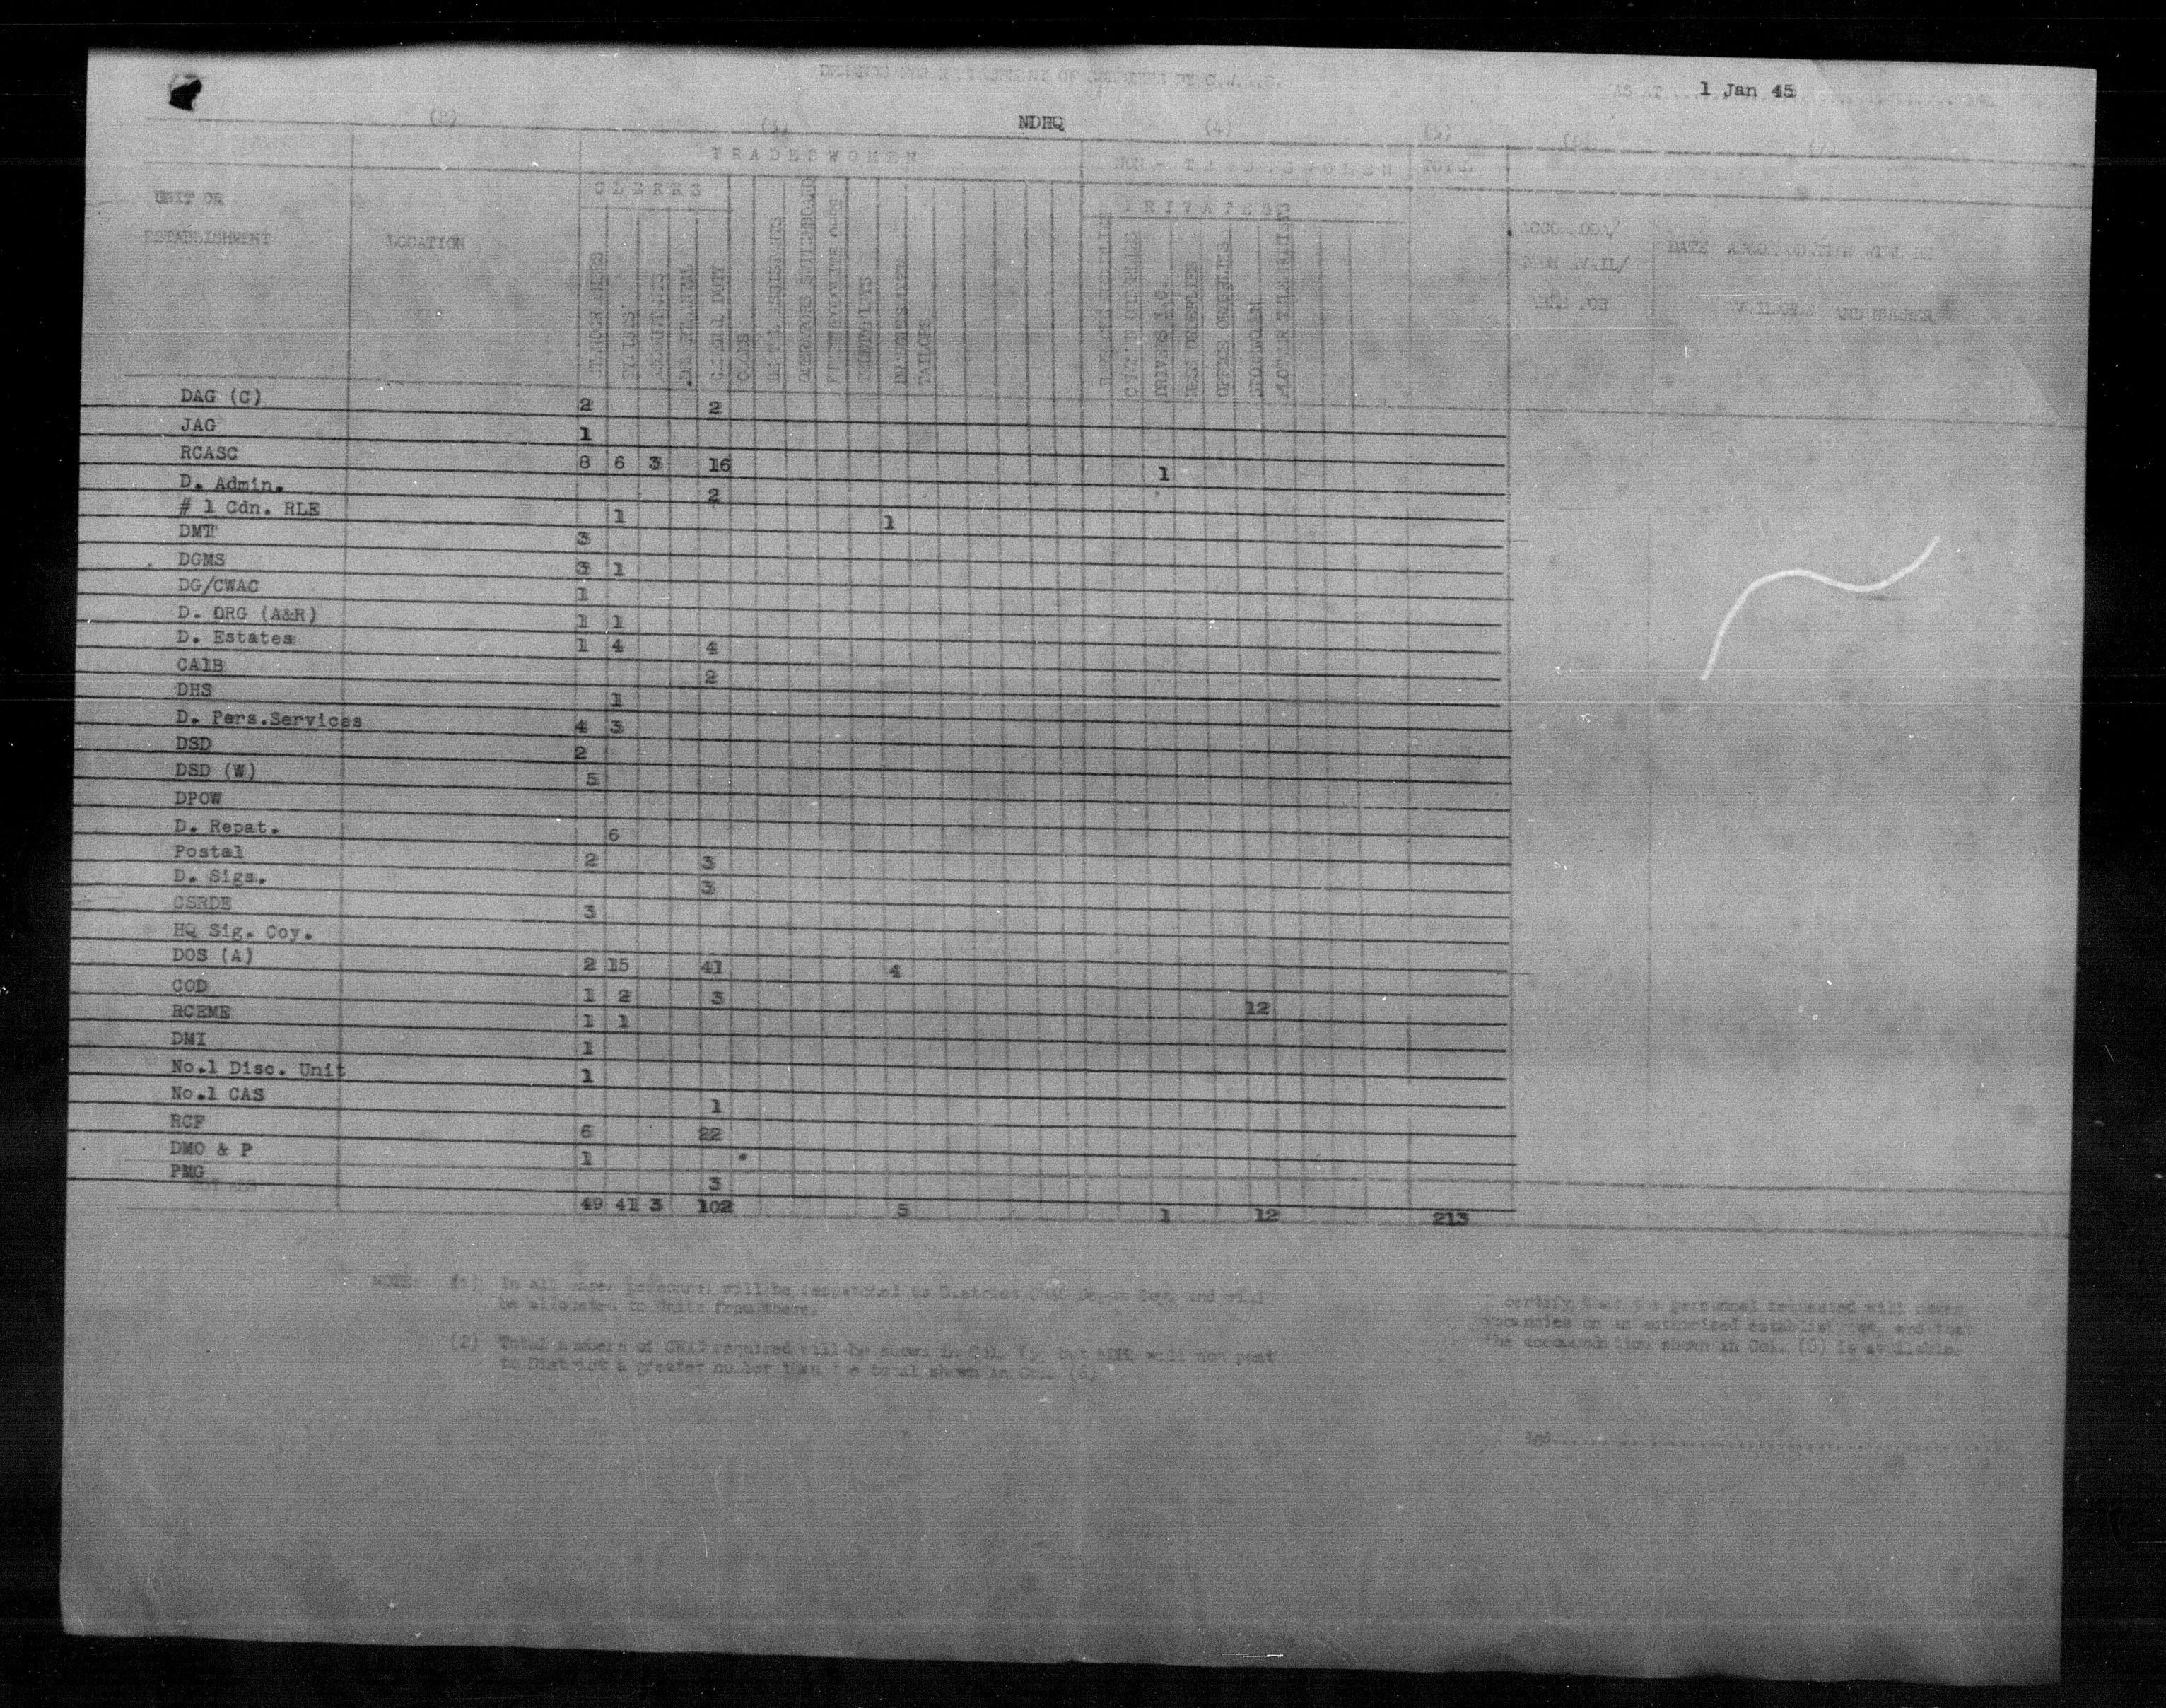 DEMANDS FOR REPLACEMENT OF SOLDIERS BY C.W.A.C.
AS AT 1 Jan 45
NDHQ
(2) (3) (4) (5) (6) (7)
TRADESWOMEN NON - TRADESWOMEN TOTAL
CLERKS PRIVATES
UNIT OR
ESTABLISHMENT
LOCATION
STENOGRAPHERS
TYPISTS
ACCOUNTANTS
GENERAL DUTY
COOKS
DENTAL ASSISTANTS
OPERATORS SWITCHBOARD
DRAUGHTSWOMEN
TAILORS
DRIVERS I.C.
MESS ORDERLIES
OFFICE ORDERLIES
STOREWOMEN
ACCOMODA/
TION AVAIL/
ABLE FOR
DATE ACCOMODATION WILL BE
AVAILABLE AND NUMBER
DAG (C) 2 2
JAG 1
RCASC 8 6 3 16 1
D. Admin. 2
# 1 Cdn. RLE 1 1
DMT 3
DGMS 3 1
DG/CWAC 1
D. ORG (A&R) 1 1
D. Estates 1 4 4
CA1B 2
DHS 1
D. Pers.Services 4 3
DSD 2
DSD (W) 5
DPOW
D. Repat. 6
Postal 2 3
D. Sigs. 3
CSRDE 3
HQ Sig. Coy.
DOS (A) 2 15 41 4
COD 1 2 3 12
RCEME 1 1
DMI 1
No.1 Disc. Unit 1
No.1 CAS 1
RCF 6 22
DMO & P 1
PMG 3
49 41 3 102 5 1 12 213
NOTE: (1) In all cases personnel will be despatched to District CWAC Depot Coy. and will
be allocated to Units from there.
(2) Total numbers of CWAC required will be shown in Col. (5) but NDHQ will not post
to District a greater number than the total shown in Col. (6)
I certify that the personnel requested will cover
vacancies on an authorized establishment, and that
the accomodation shown in Col. (6) is available.
Sgd.